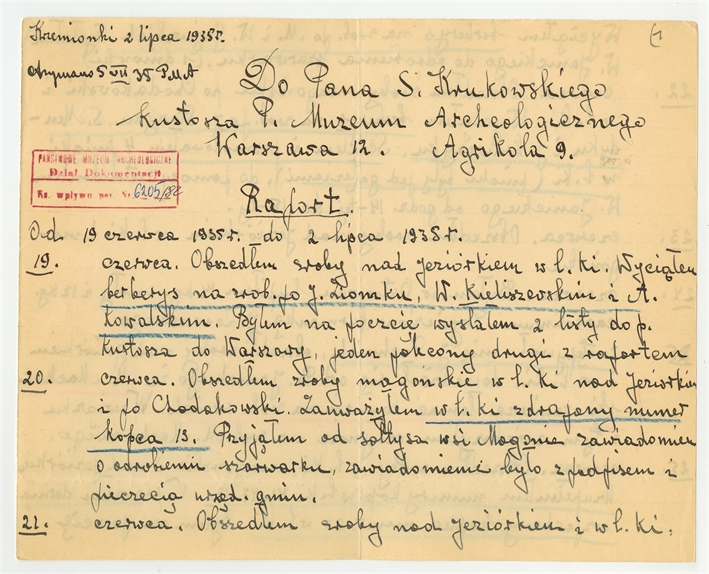 Krzemionki 2 lipca 1935r. (1
Otrzymano 5 VII 35 P.M.A
Do Pana S. Krukowskiego
Kustosza P. Muzeum Archeologicznego
Warszawa 12. Agrikola 9.
PAŃSTWOWE MUZEUM ARCHEOLOGICZNE
Dział Dokumentacji
Ks. wpływu poz. Nr 6205/
Raport.
Od 19 czerwca 1935r. do 2 lipca 1935r.
19. czerwca. Obszedłem zroby nad Jeziórkiem w ł. ki. Wyciąłem
berberys na zrob. po J. Ziomku, W. Kieliszewskim i A.
Kowalskim. Byłem na poczcie wysłałem 2 listy do p.
Kustosza do Warszawy, jeden polecony drugi z raportem
20. czerwca. Obszedłem zroby magońskie w ł. ki nad Jeziórkiem
i po Chodakowski. Zauważyłem w ł. ki zdrapany numer
kopca 13. Przyjąłem od sołtysa wsi Magonie zawiadomien
o odrobieniu szarwarku, zawiadomienie było z podpisem i
pieczecią urzęd. gmin.
21. czerwca. Obszedłem zroby nad Jeziórkiem i w ł. ki.